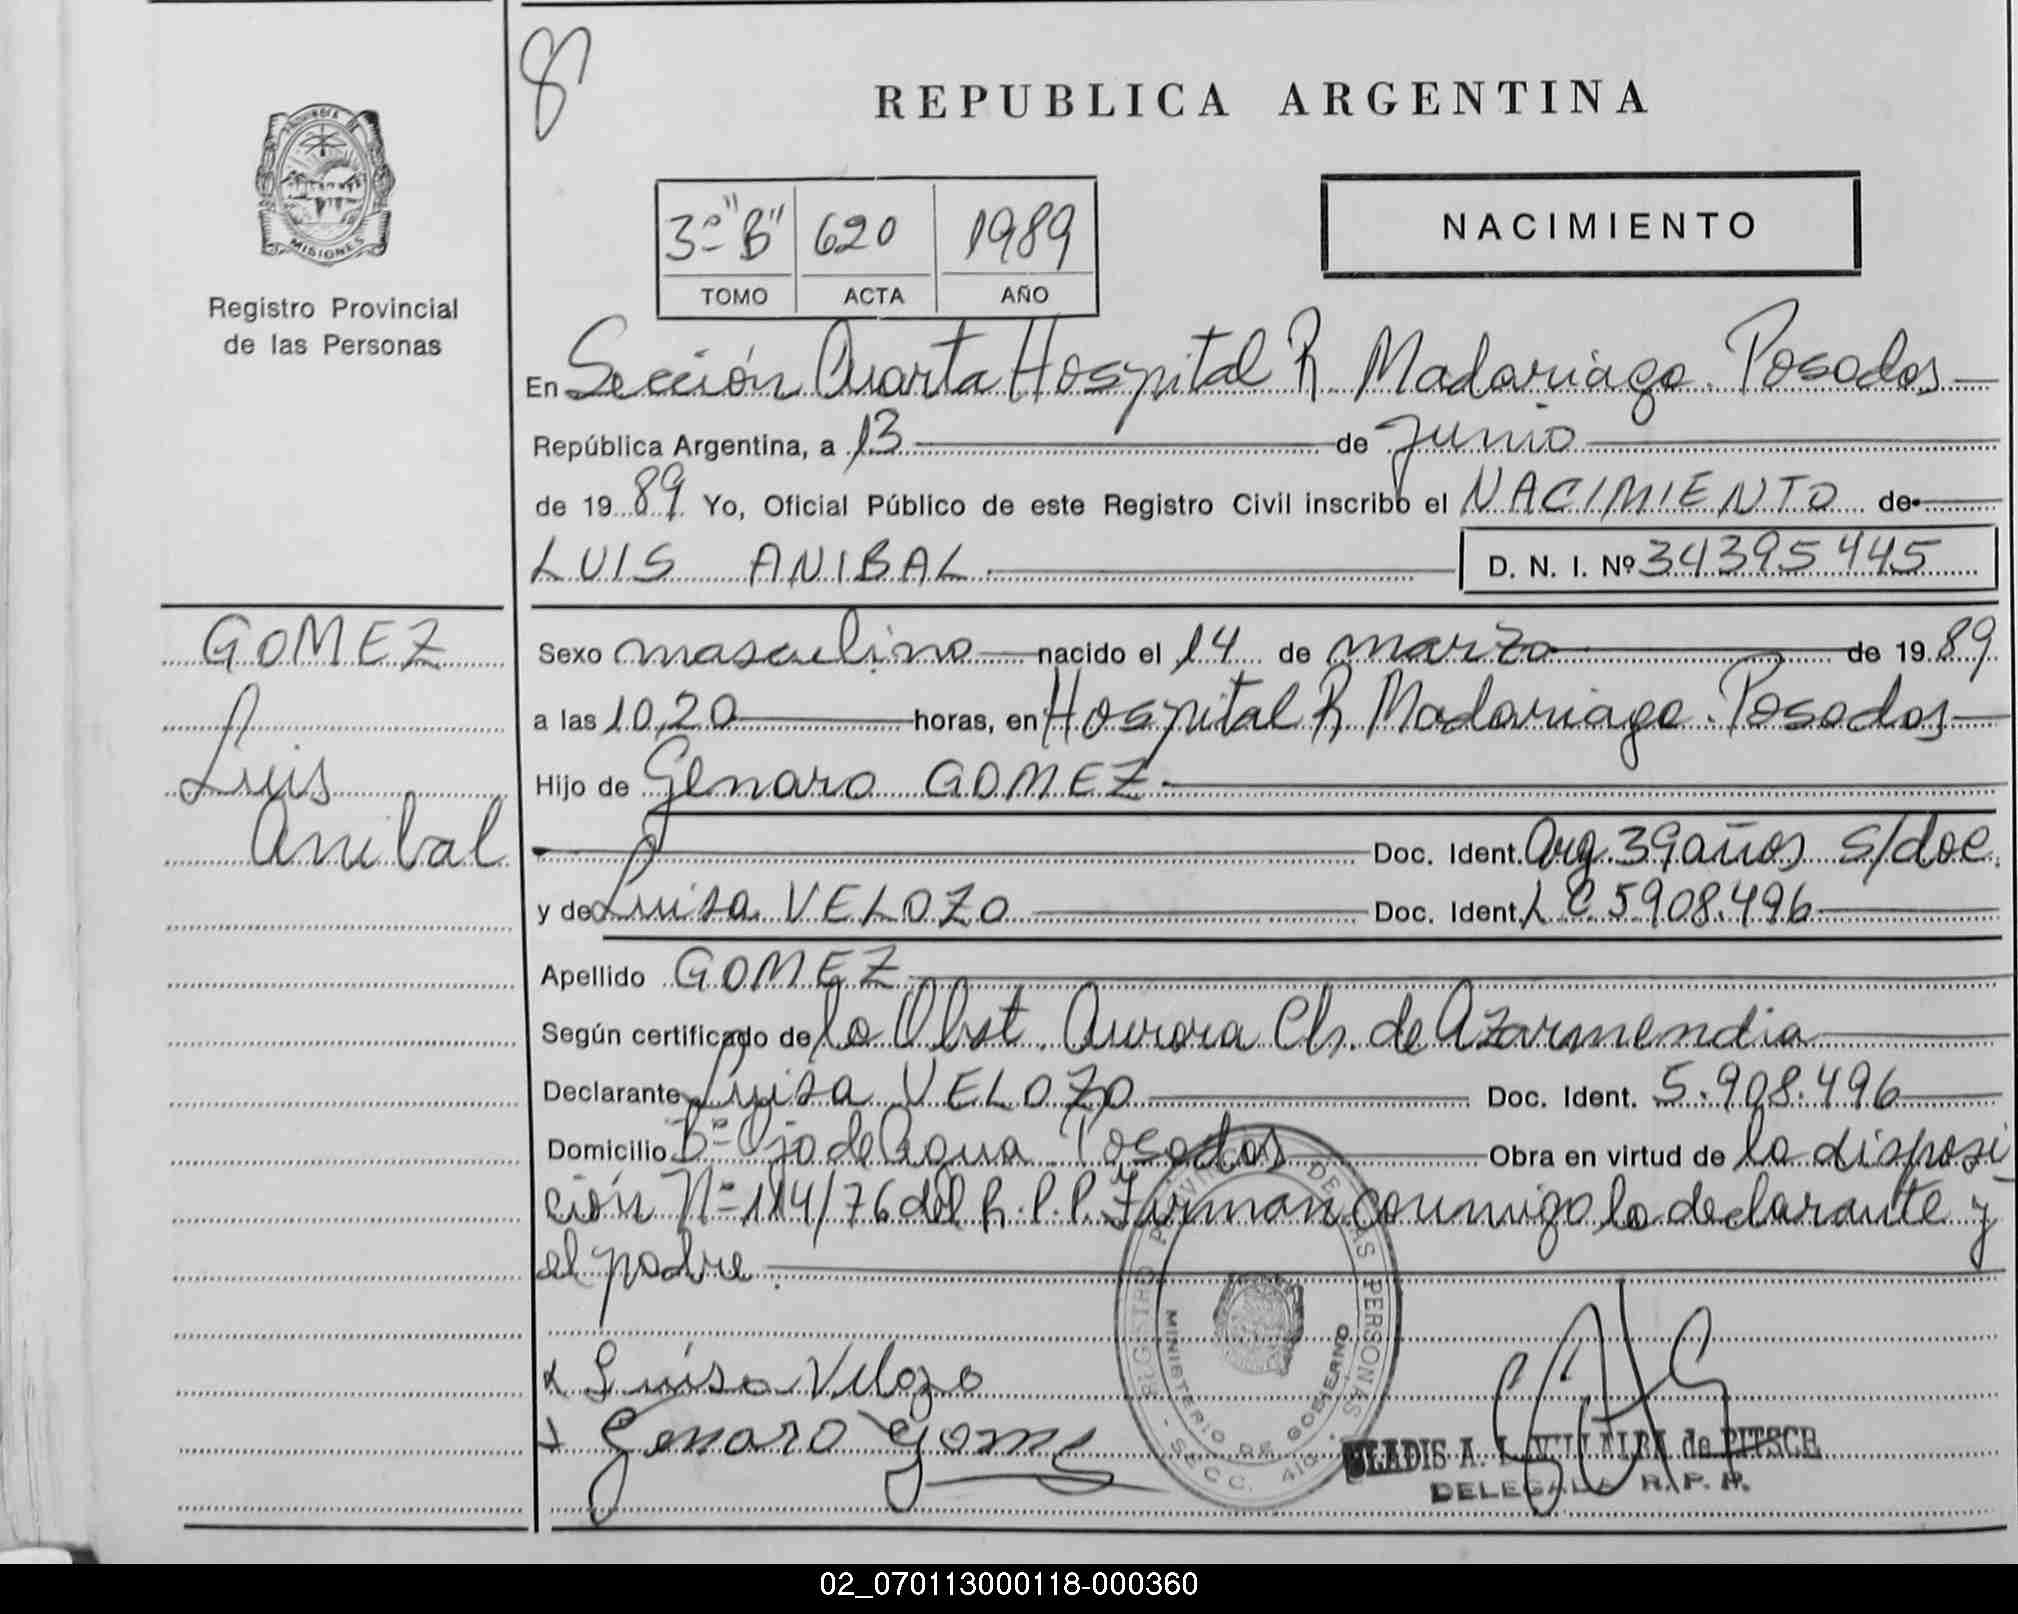 8
PROVINCIA DE
MISIONES
Registro Provincial
de las Personas
GOMEZ
Luis
Anibal
REPUBLICA ARGENTINA
3º "B" 620 1989
TOMO ACTA AÑO
NACIMIENTO
En Sección Cuarta Hospital R. Madariaga. Posadas
República Argentina, a 13 de Junio
de 19 89 Yo, Oficial Público de este Registro Civil inscribo el NACIMIENTO de
LUIS ANIBAL D. N. I. Nº 34395445
Sexo masculino nacido el 14 de marzo de 19 89
a las 10,20 horas, en Hospital R. Madariaga. Posadas
Hijo de Genaro GOMEZ
Doc. Ident. Arg. 39 años s/doc.
y de Luisa VELOZO Doc. Ident. L.C. 5908.496
Apellido GOMEZ
Según certificado de la Obst. Aurora Ch. de Azarmendia
Declarante Luisa VELOZO Doc. Ident. 5.908.496
Domicilio Bº Ojo de Agua Posadas Obra en virtud de la disposi
ción Nº 114/76 del R.P.P. Firman conmigo la declarante y
el padre.
x Luisa Velozo
Genaro Gomez
REGISTRO PROVINCIAL DE LAS PERSONAS
MINISTERIO DE GOBIERNO
- SECC. 4ta -
GLADIS A. de PITSCH
DELEGADA R. P. P.
02_070113000118-000360